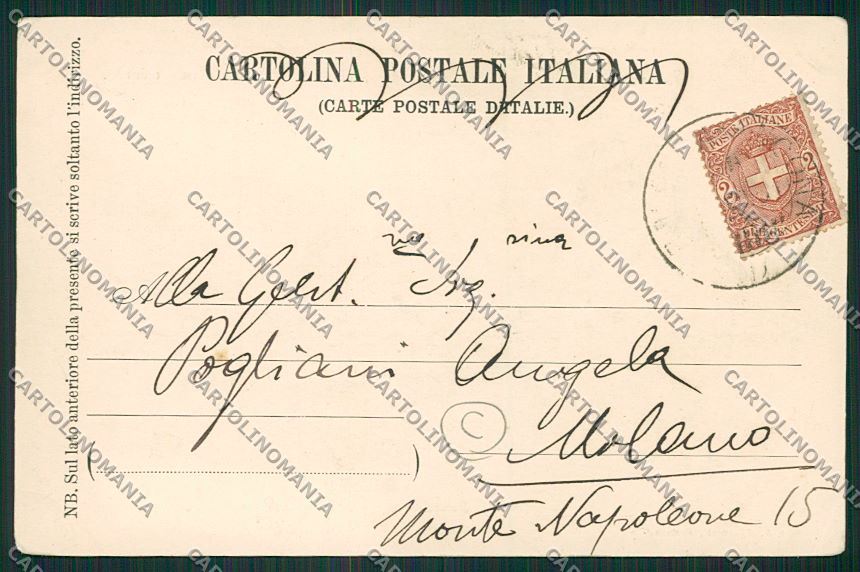 CARTOLINA POSTALE ITALIANA
(CARTE POSTALE D'ITALIE.)
NB. Sul lato anteriore della presente si scrive soltanto l'indirizzo.
POSTE ITALIANE
2 2
DUE CENTESIMI
Alla Gent.ma Sig.rina
Pogliani Angela
C
Milano
Monte Napoleone 15
CARTOLINOMANIA